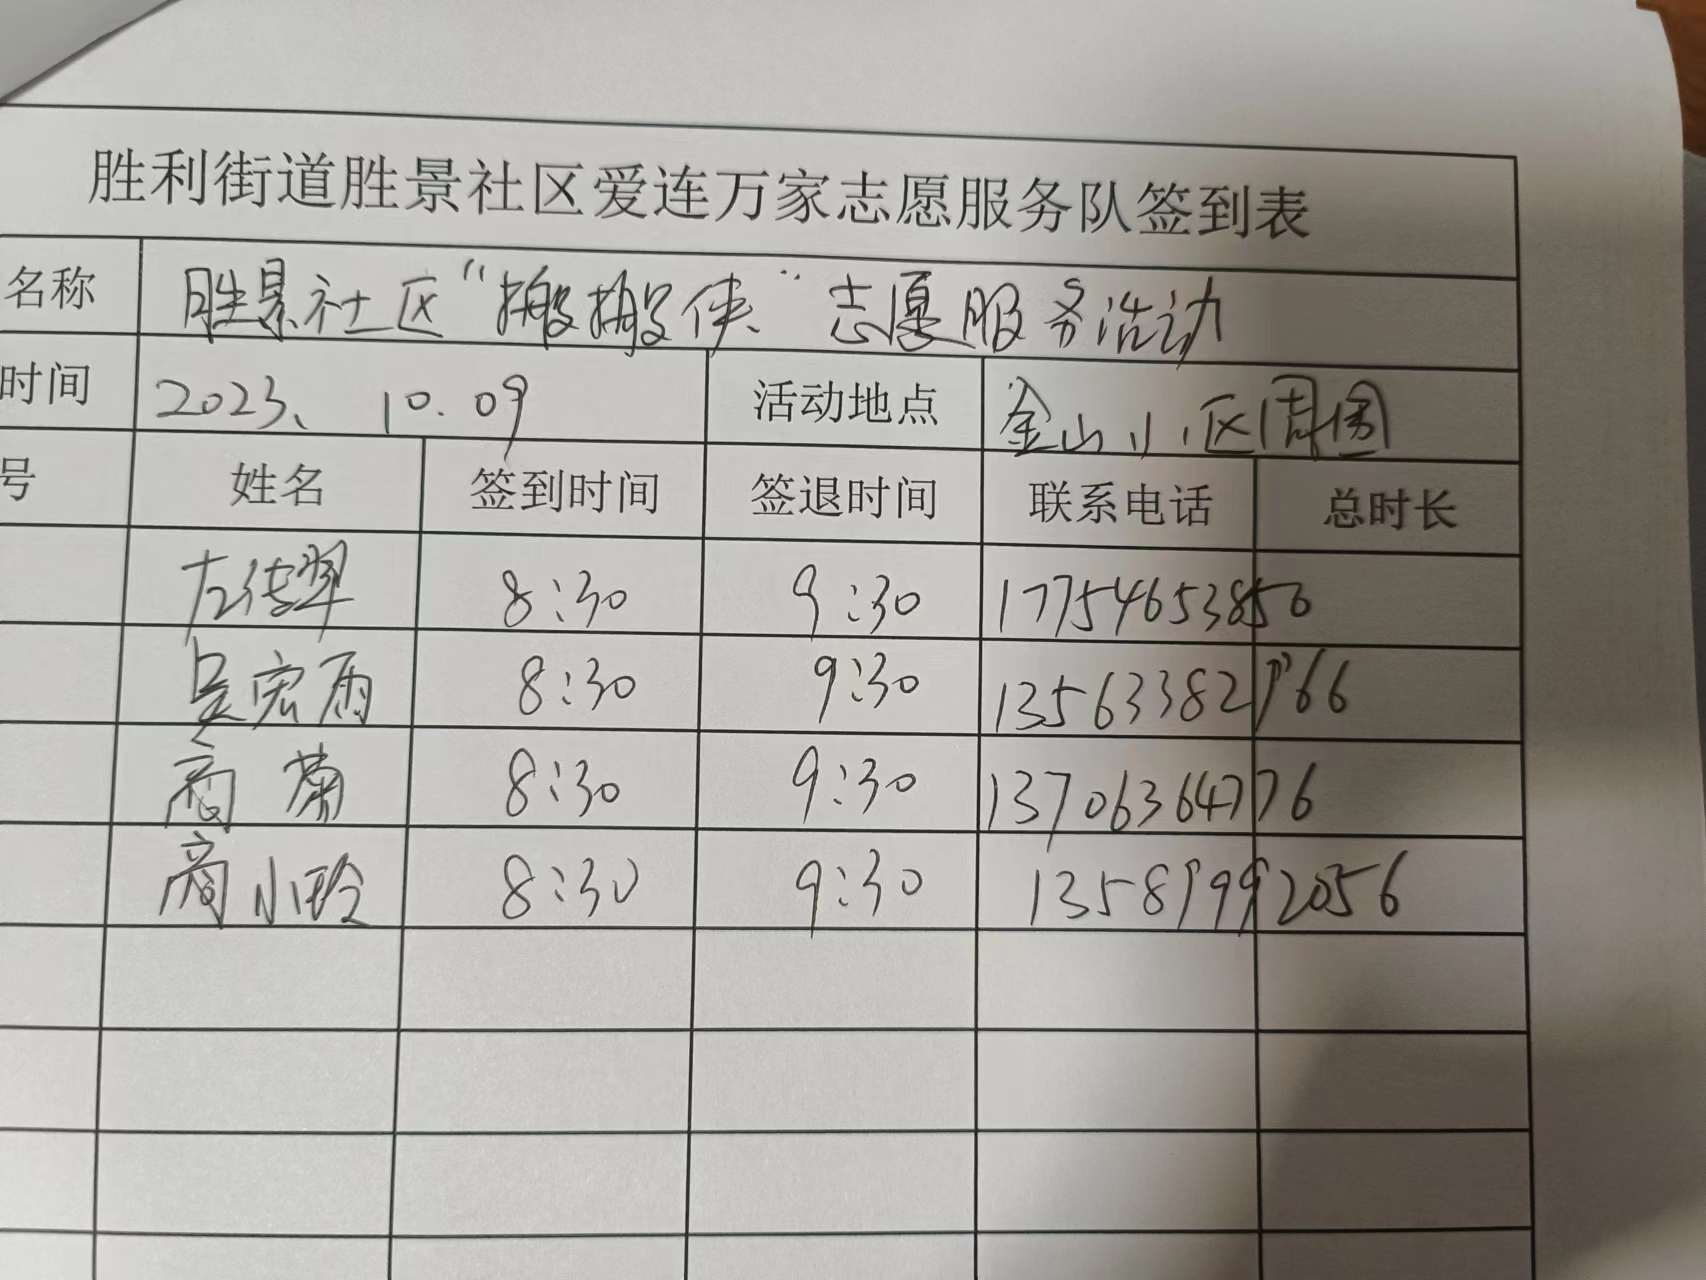 胜利街道胜景社区爱连万家志愿服务队签到表
名称 胜景社区“搬搬侠”志愿服务活动
时间 2023、10.09 活动地点 金山小区周围
号 姓名 签到时间 签退时间 联系电话 总时长
左传翠 8:30 9:30 17754653850
吴宏雨 8:30 9:30 13563382966
商 8:30 9:30 13706364776
商小玲 8:30 9:30 13589992056